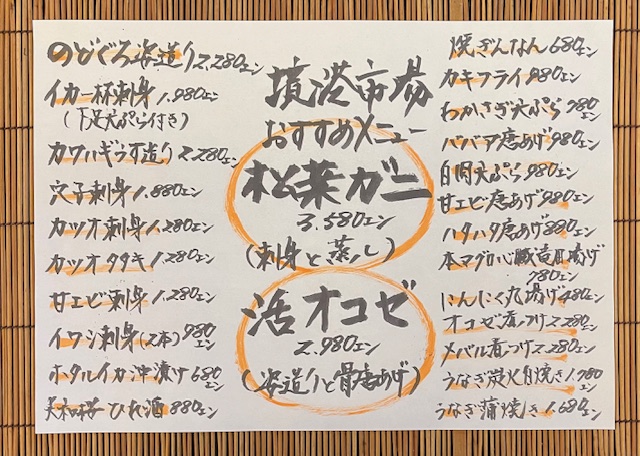 のどぐろ姿造り2.280エン
イカ一杯刺身1.980エン
(下足天ぷら付き)
カワハギうす造り2.280エン
穴子刺身1.880エン
カツオ刺身1.280エン
カツオタタキ1.280エン
甘エビ刺身1.280エン
イワシ刺身(2本)980エン
ホタルイカ沖漬け680エン
ひれ酒880エン
境港市場
おすすめメニュー
松葉ガニ
3.580エン
(刺身と蒸し)
活オコゼ
2.980エン
(姿造りと骨唐あげ)
焼ぎんなん680エン
カキフライ980エン
わかさぎ天ぷら980エン
ババア唐あげ980エン
白同天ぷら980エン
甘エビ唐あげ980エン
ハタハタ唐あげ880エン
本マグロ心臓竜田揚げ
980エン
にんにく丸揚げ480エン
オコゼ煮つけ2.280エン
メバル煮つけ2.280エン
うなぎ炭火白焼き1.780エン
うなぎ蒲焼き1.680エン